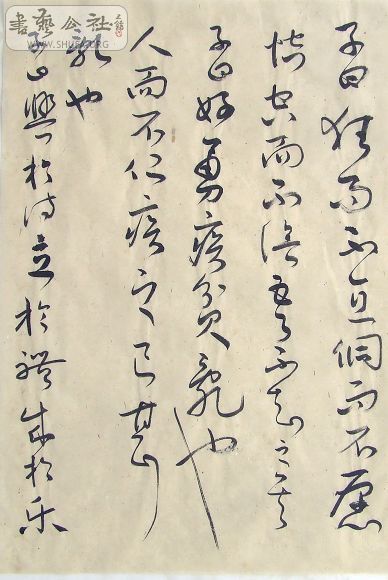 書藝公社
WWW.SHUFA.ORG
子曰狂而不直侗而不愿
悾悾而不信吾不知之矣
子曰好勇疾貧亂也
人而不仁疾之已甚
亂也
子曰興於詩立於禮成於乐